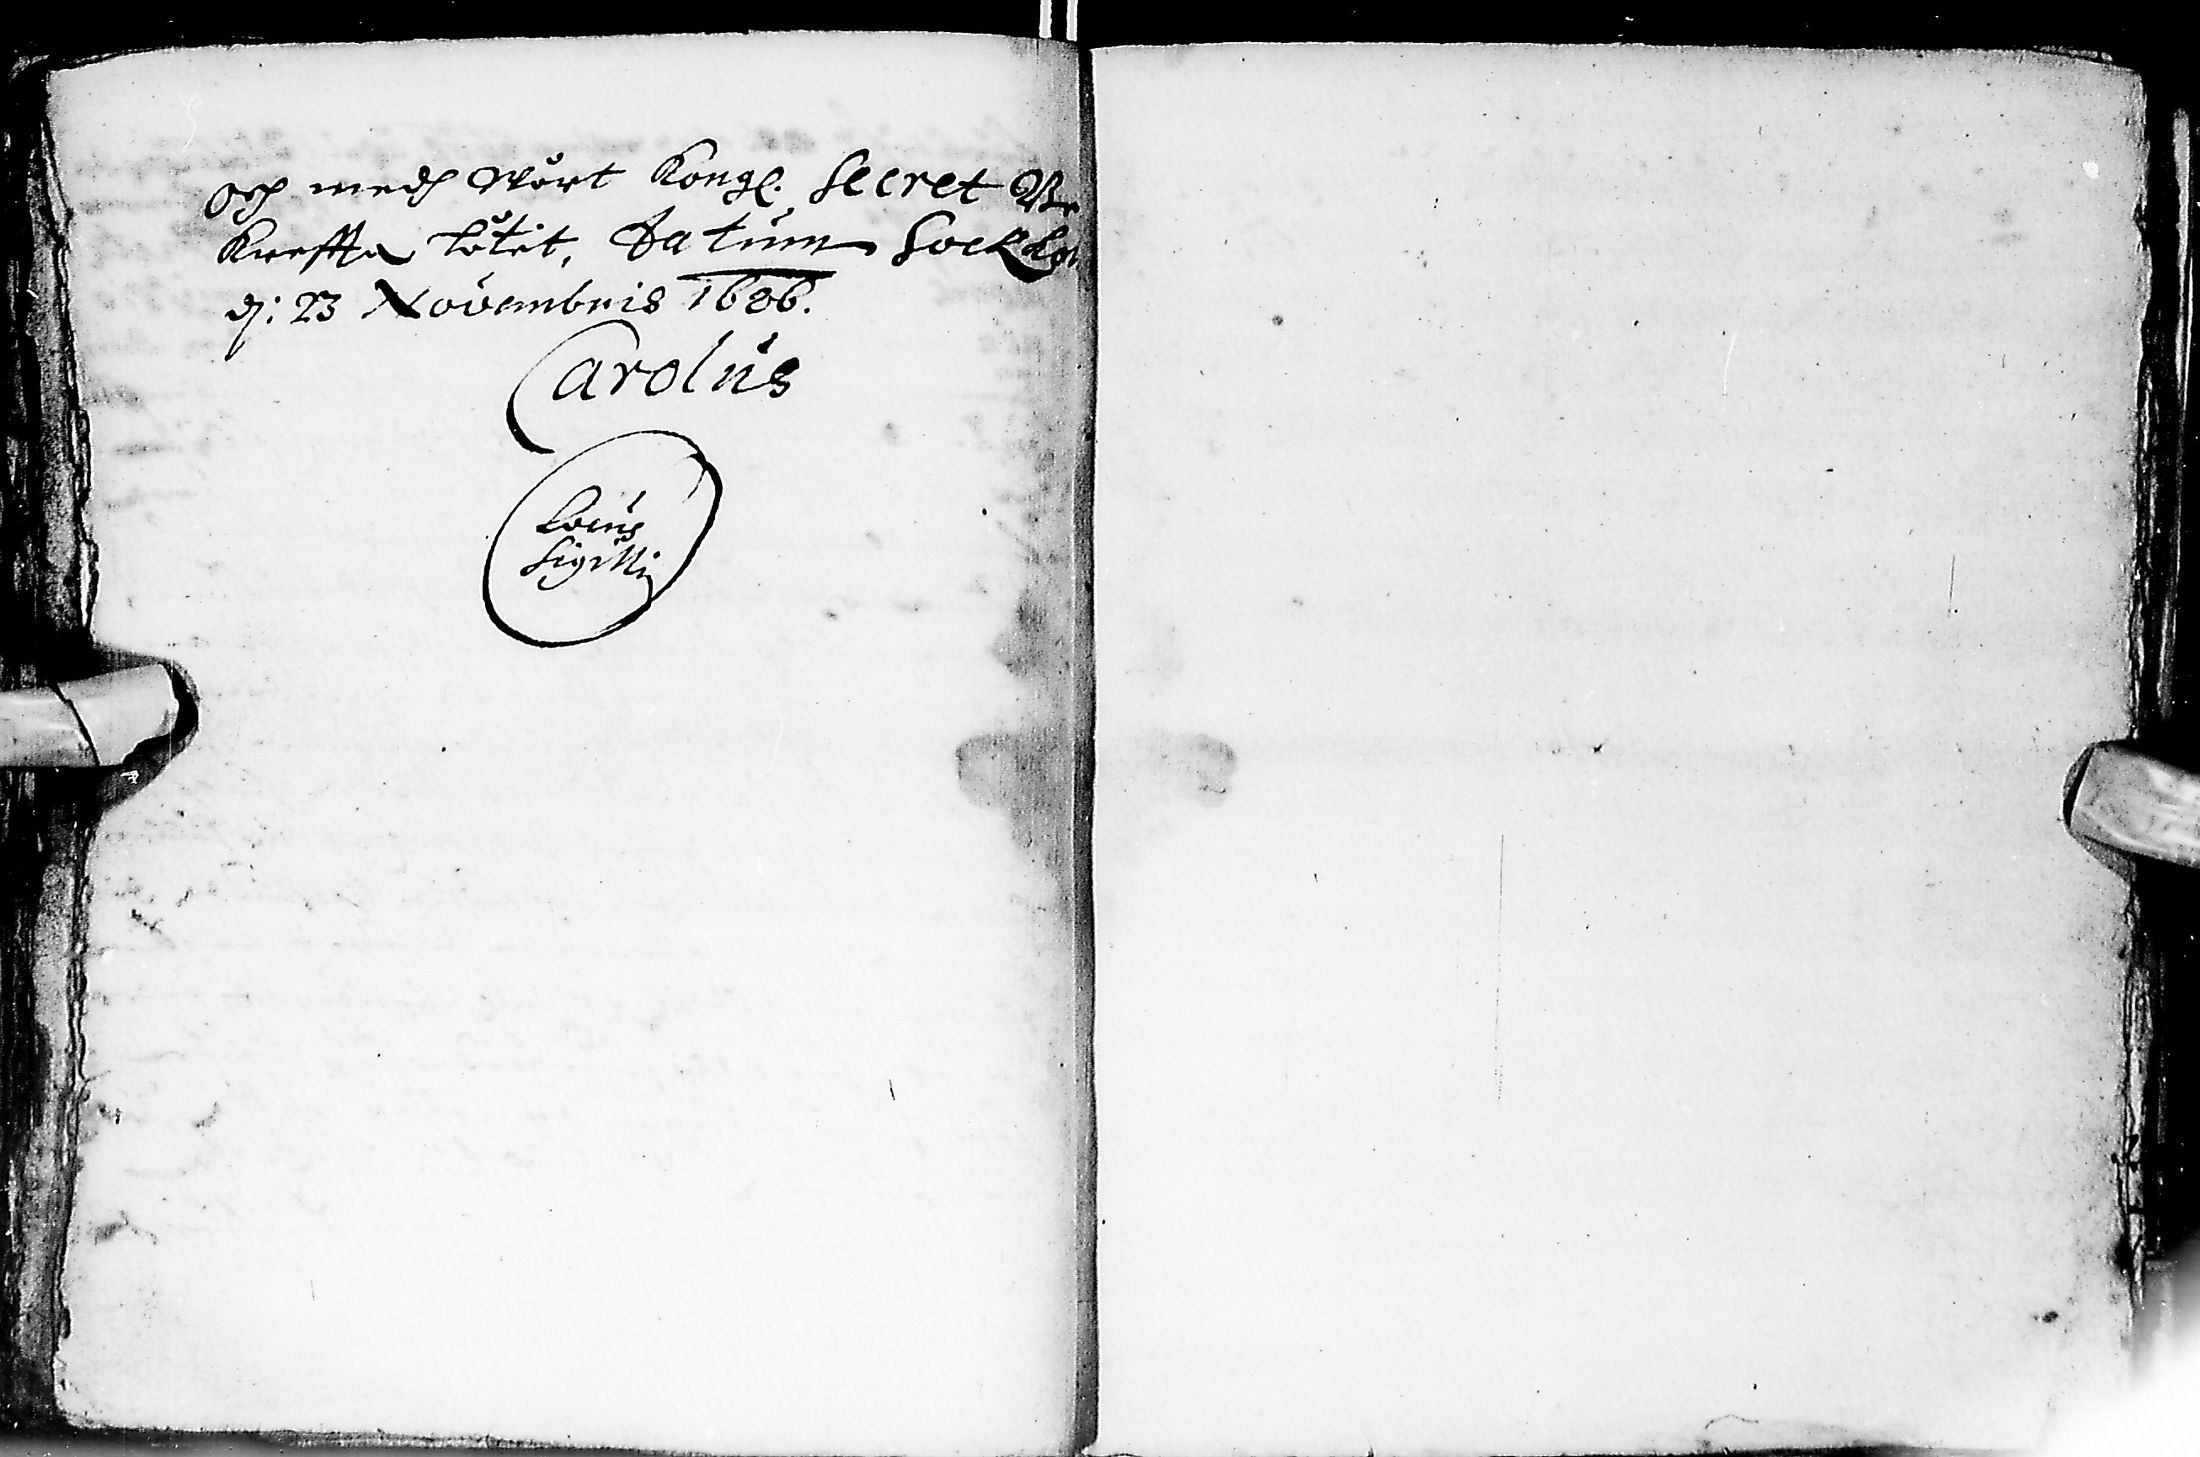 och medh Wårt Kongl. Secret Be
Kreffta låtit, Datum Sockhol
d: 23 Novembris 1686.
Carolus
Locus
Sigilli